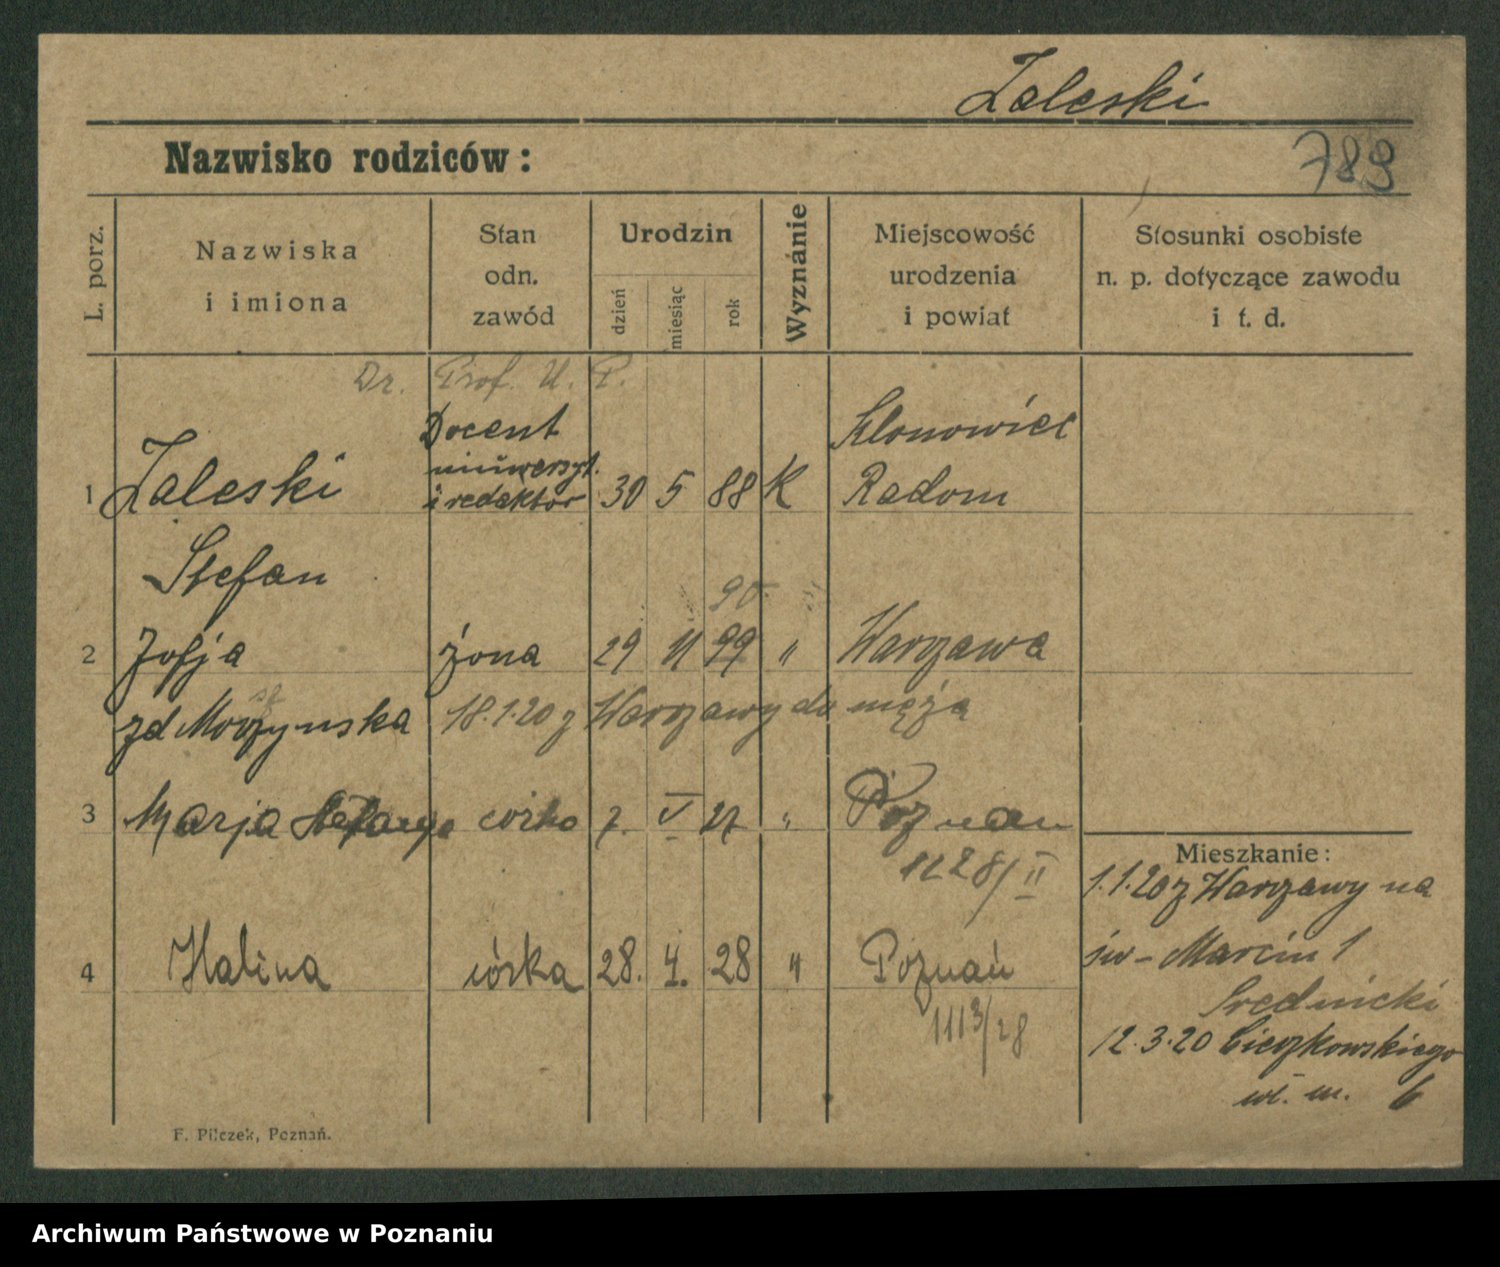 Zaleski
Nazwisko rodziców:
789
L. porz.
Nazwiska
i imiona
Stan
odn.
zawód
Urodzin
dzień
miesiąc
rok
Wyznanie
Miejscowość
urodzenia
i powiat
Stosunki osobiste
n. p. dotyczące zawodu
i t. d.
Dr. Prof. U. P.
1 Zaleski Docent uniwersyt. i redaktor 30 5 88 K Klonowiec Radom
Stefan
90
2 Zofja żona 29 11 99 " Warszawa
zd Morzynska 18.1.20 z Warszawy do męża
3 Marja córka 7. V 27 " Poznań
1228/II
4 Halina córka 28. 4. 28 " Poznań
1113/28
Mieszkanie:
1.1.20 z Warszawy na
św- Marcin 1
Srednicki
12.3.20 Cieszkowskiego
wł. m. 6
F. Pilczek, Poznań.
Archiwum Państwowe w Poznaniu